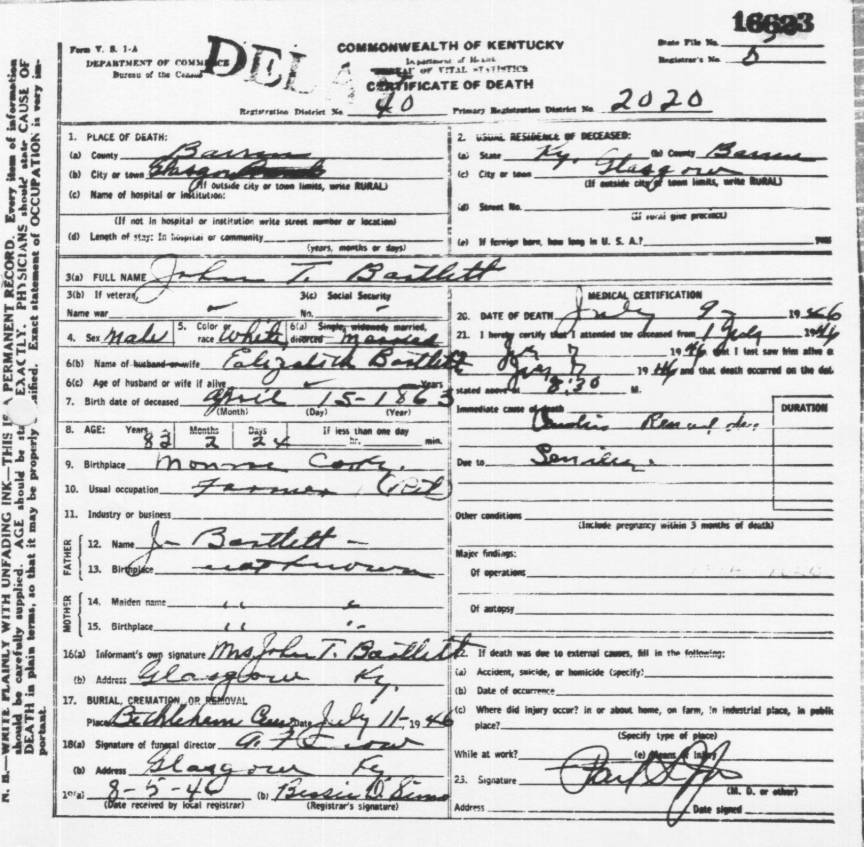 16623
Form V. S. 1-A
DEPARTMENT OF COMMERCE
Bureau of the Census
DELA
COMMONWEALTH OF KENTUCKY
Department of Health
BUREAU OF VITAL STATISTICS
CERTIFICATE OF DEATH
State File No.
Registrar's No. 5
Registration District No. 40 Primary Registration District No. 2020
N. B.—WRITE PLAINLY WITH UNFADING INK—THIS IS A PERMANENT RECORD. Every item of information
should be carefully supplied. AGE should be EXACTLY. PHYSICIANS should state CAUSE OF
DEATH in plain terms, so that it may be properly Exact statement of OCCUPATION is very im-
portant.
1. PLACE OF DEATH:
(a) County Barren
(b) City or town Glasgow
(If outside city or town limits, write RURAL)
(c) Name of hospital or institution:
(If not in hospital or institution write street number or location)
(d) Length of stay: In hospital or community
(years, months or days)
2. USUAL RESIDENCE OF DECEASED:
(a) State Ky. (b) County Barren
(c) City or town Glasgow
(If outside city or town limits, write RURAL)
(d) Street No.
(If rural give precinct)
(e) If foreign born, how long in U. S. A.? years
3(a) FULL NAME John T. Bartlett
3(b) If veteran,
Name war
3(c) Social Security
No.
4. Sex Male 5. Color or race White 6(a) Single, widowed, married, divorced Married
6(b) Name of husband or wife Elizabeth Bartlett
6(c) Age of husband or wife if alive Years
7. Birth date of deceased April 15-1863
(Month) (Day) (Year)
8. AGE: Years Months Days If less than one day
83 2 24 hr. min.
9. Birthplace Monroe Co Ky.
10. Usual occupation Farmer (Ret)
11. Industry or business
FATHER
12. Name J- Bartlett -
13. Birthplace not known
MOTHER
14. Maiden name " "
15. Birthplace " "
16(a) Informant's own signature Mrs John T. Bartlett
(b) Address Glasgow Ky.
17. BURIAL, CREMATION, OR REMOVAL
Place Bethlehem Cem Date July 11- 1946
18(a) Signature of funeral director A. F. Crow
(b) Address Glasgow Ky
19(a) 8-5-46 (b) Bessie D. Sims
(Date received by local registrar) (Registrar's signature)
MEDICAL CERTIFICATION
20. DATE OF DEATH July 9 1946
21. I hereby certify that I attended the deceased from 1 July 1946
7 1946 that I last saw him alive o
1946 and that death occurred on the date
stated above at 8:30 M.
Immediate cause of death Cardio Renal
DURATION
Due to
Other conditions
(Include pregnancy within 3 months of death)
Major findings:
Of operations
Of autopsy
22. If death was due to external causes, fill in the following:
(a) Accident, suicide, or homicide (specify)
(b) Date of occurrence
(c) Where did injury occur? in or about home, on farm, in industrial place, in public
place?
(Specify type of place)
While at work? (e) Means of Injury
23. Signature Paul
(M. D. or other)
Address Date signed